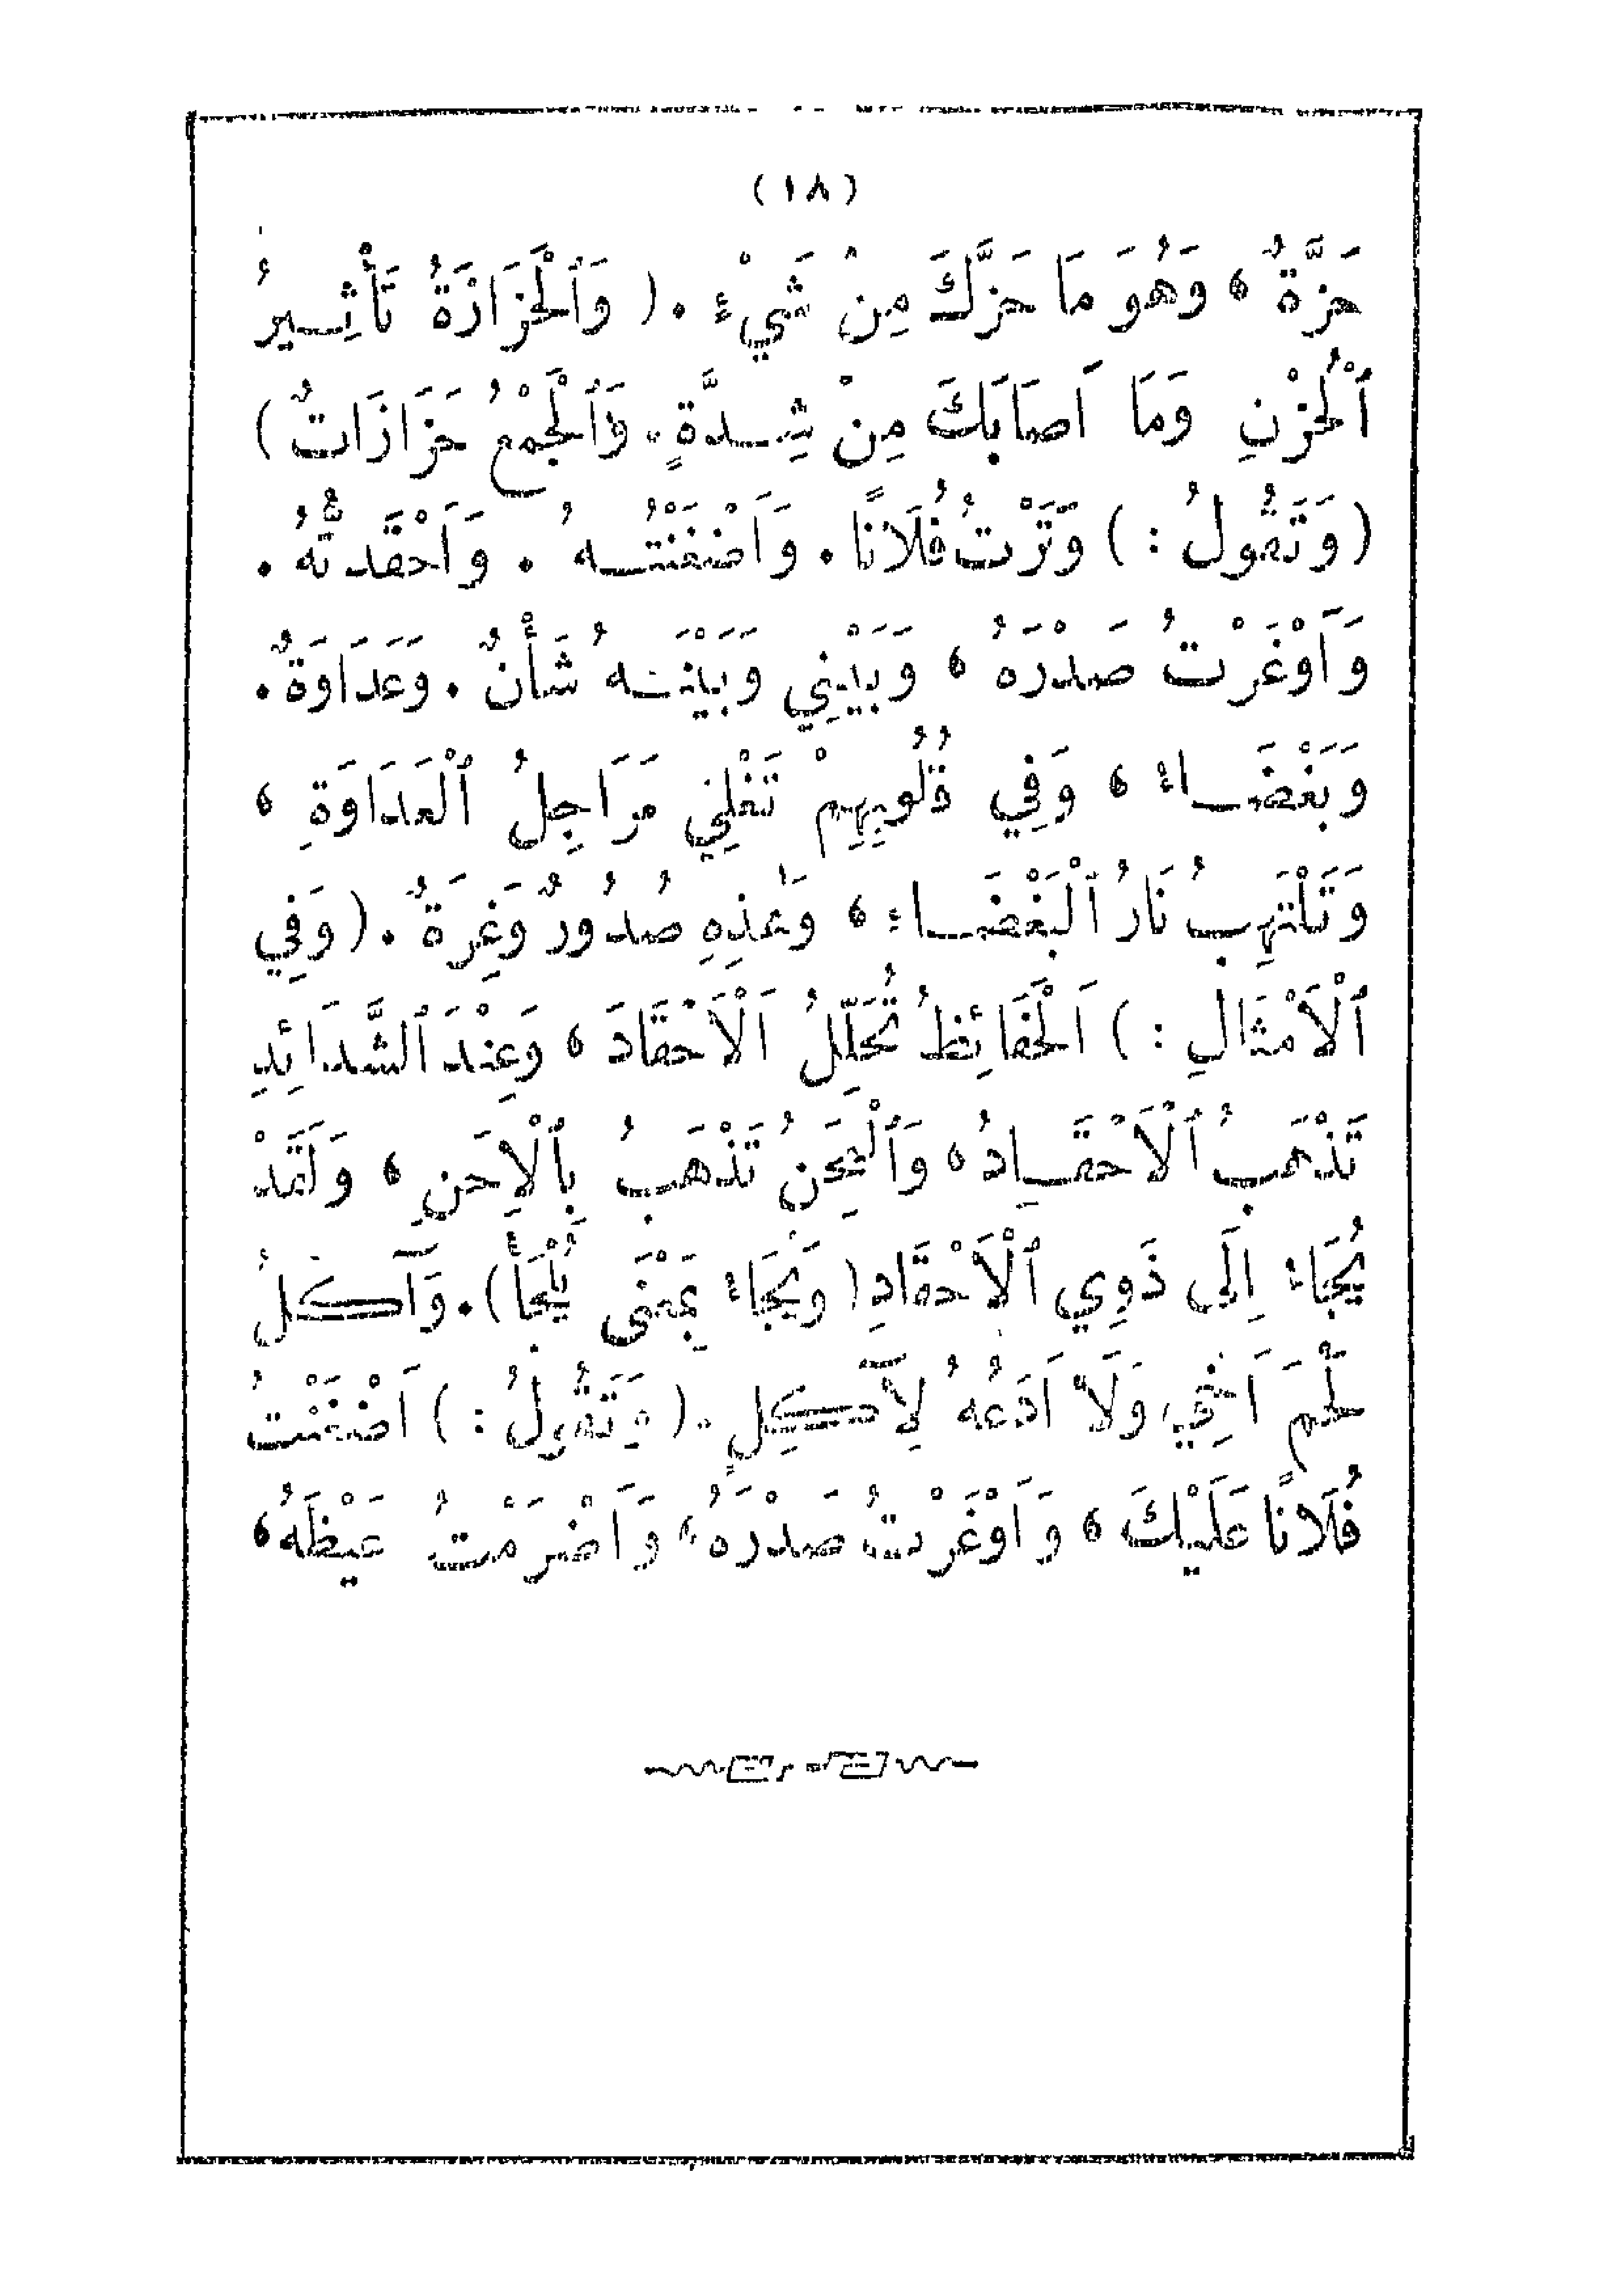 (١٨)
حَزَّةٌ ، وَهُوَ مَا حَزَّكَ مِنْ شَيْءٍ . ( وَٱلْحَزَازَةُ تَأْثِيرُ
ٱلْحُزْنِ وَمَا اَصَابَكَ مِنْ شِدَّةٍ . وَٱلْجَمْعُ حَزَازَاتٌ )
( وَتَقُولُ : ) وَتَرْتُ فُلَانًا . وَاَضْغَنْتُهُ . وَاَحْقَدتُّهُ .
وَاَوْغَرْتُ صَدْرَهُ ، وَبَيْنِي وَبَيْنَهُ شَأْنٌ . وَعَدَاوَةٌ .
وَبَغْضَاءُ ، وَفِي قُلُوبِهِمْ تَغْلِي مَرَاجِلُ ٱلْعَدَاوَةِ ،
وَتَلْتَهِبُ نَارُ ٱلْبَغْضَاءِ ، وَهٰذِهِ صُدُورٌ وَغِرَةٌ . ( وَفِي
ٱلْاَمْثَالِ : ) اَلْحَفَائِظُ تُحَلِّلُ ٱلْاَحْقَادَ ، وَعِنْدَ ٱلشَّدَائِدِ
تَذْهَبُ ٱلْاَحْقَادُ ، وَٱلْمِحَنُ تَذْهَبُ بِٱلْاِحَنِ ، وَلَقَدْ
يُجَاءُ اِلَى ذَوِي ٱلْاَحْقَادِ ( وَيُجَاءُ بِمَعْنَى يُلْجَأُ ) . وَآكُلُ
لَحْمَ اَخِي وَلَا اَدَعُهُ لِآكِلٍ . ( وَتَقُولُ : ) اَضْغَنْتُ
فُلَانًا عَلَيْكَ ، وَاَوْغَرْتُ صَدْرَهُ ، وَاَضْرَمْتُ غَيْظَهُ ،